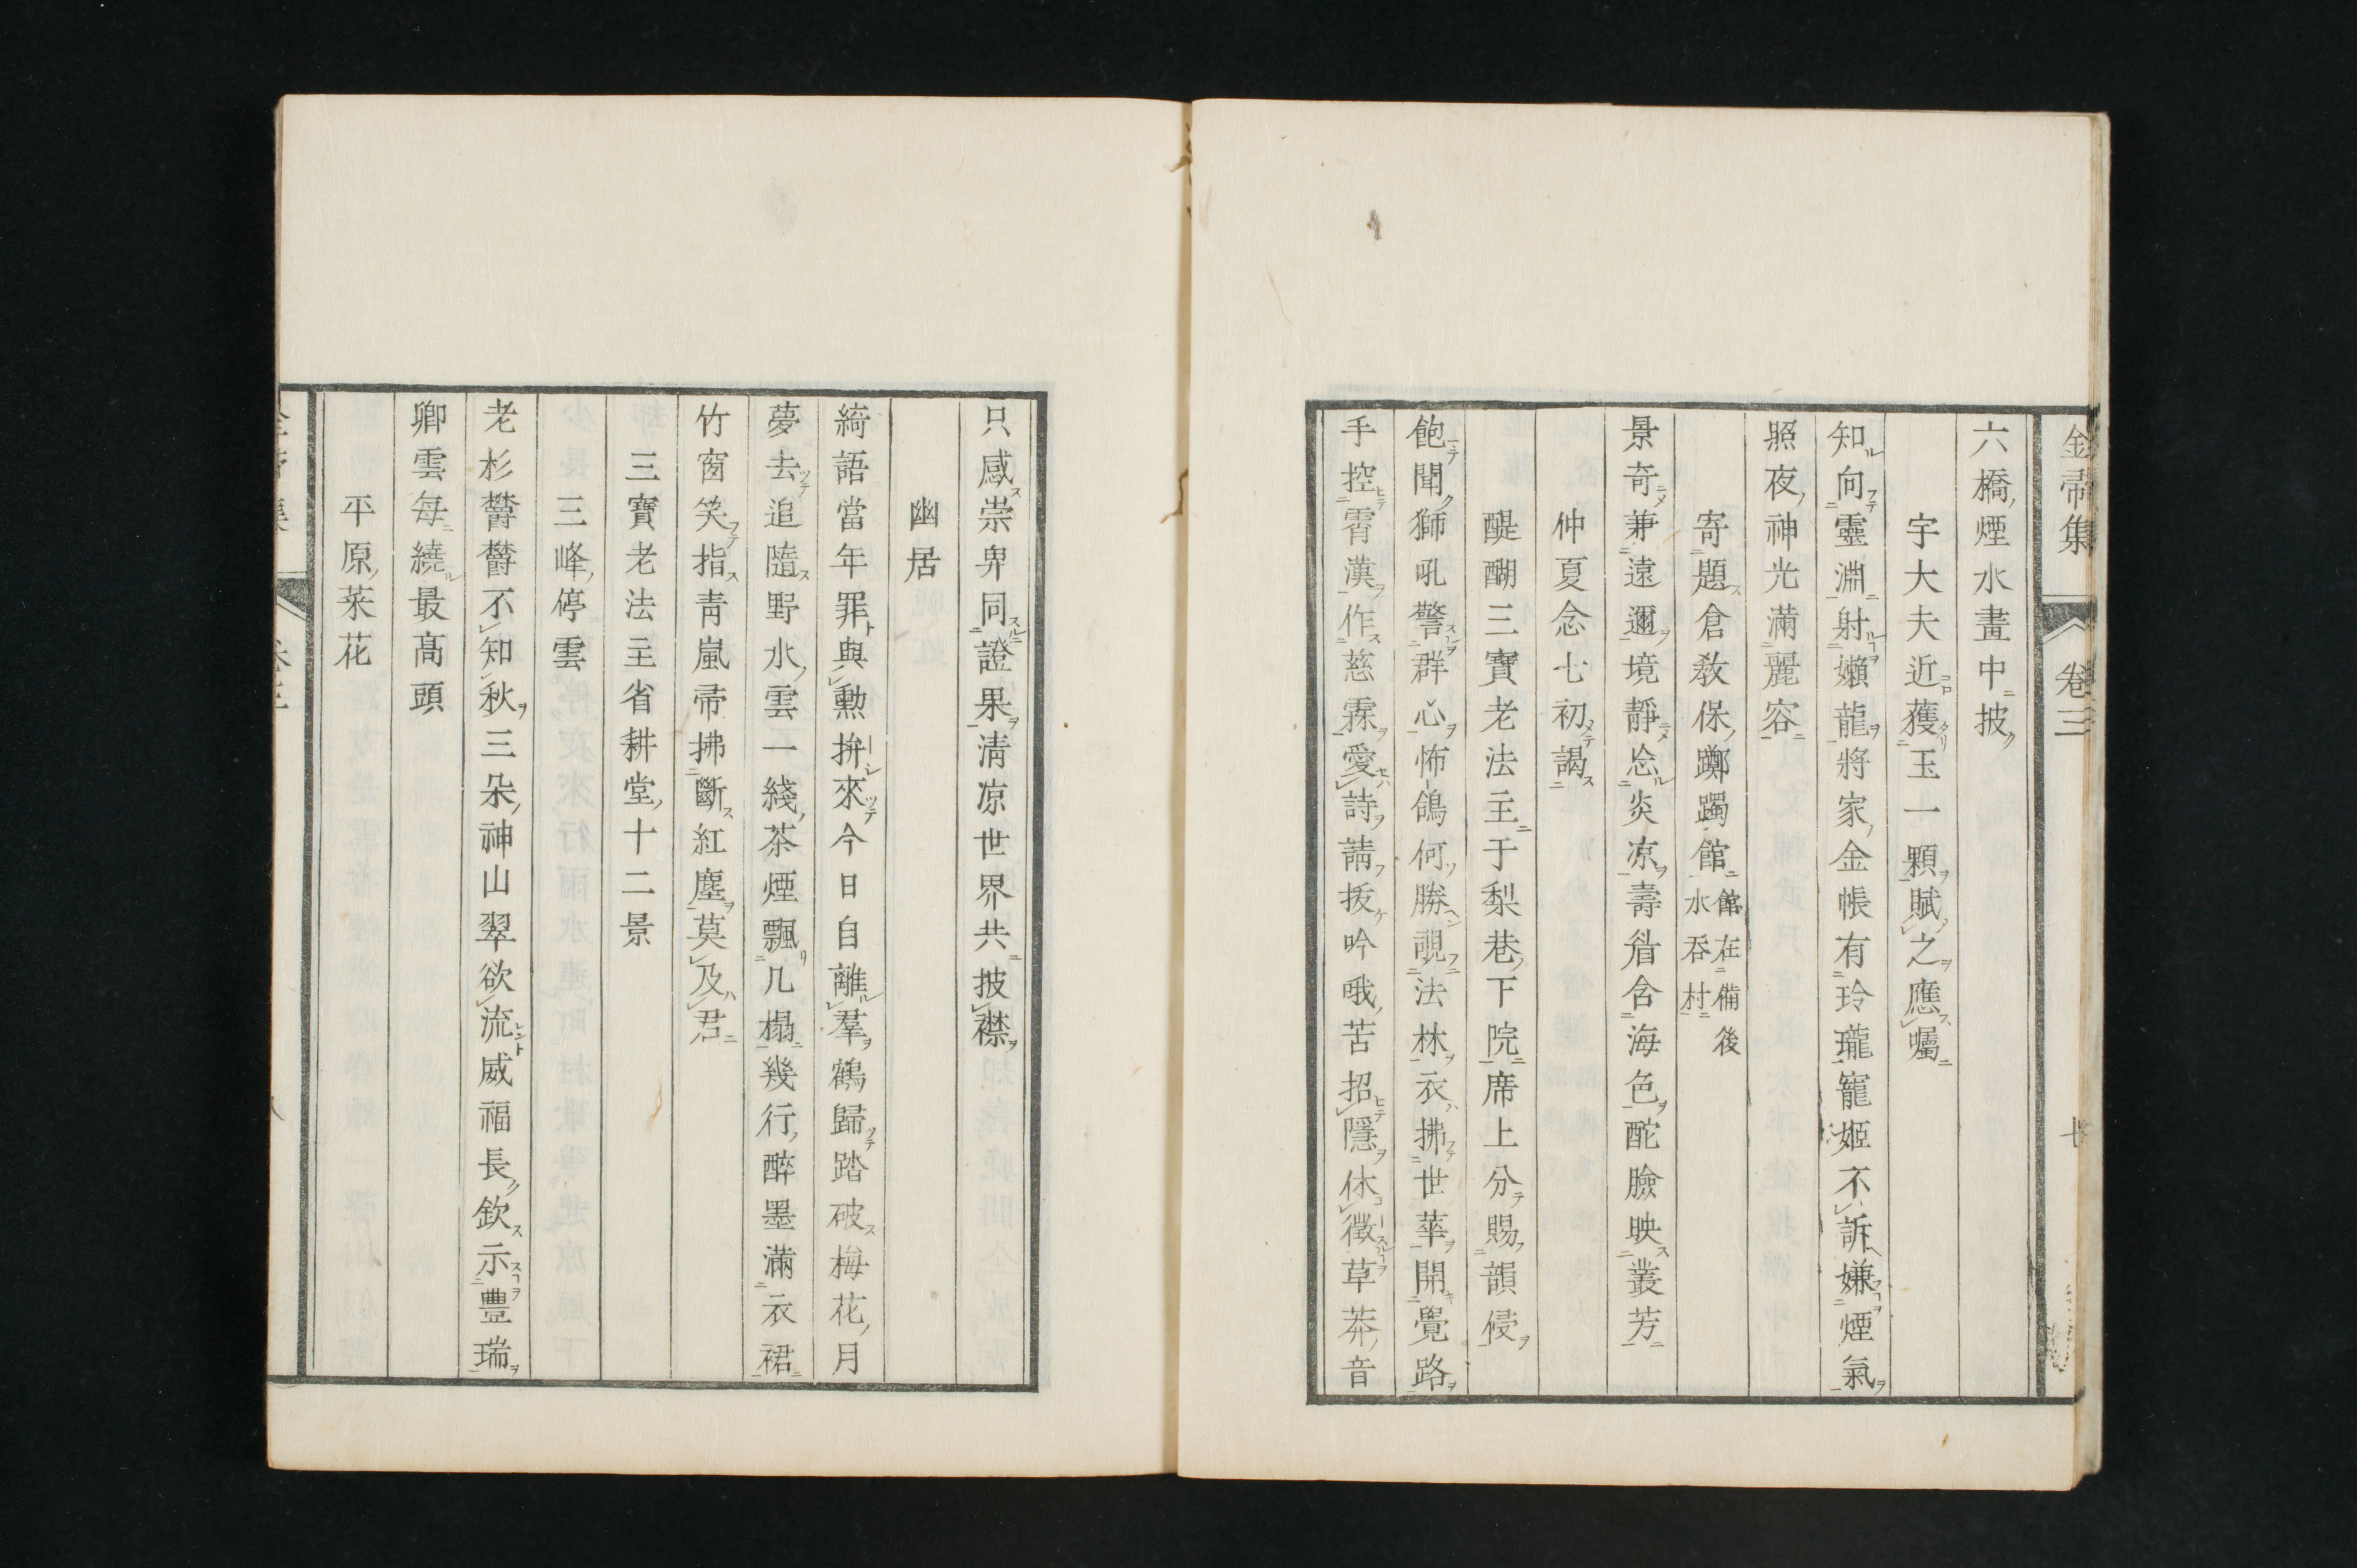 金帚集 卷三 七
六橋煙水畫中披
宇大夫近獲玉一顆賦之應囑
知向靈淵射嬾龍將家金帳有玲瓏寵姬不訴嫌煙氣
照夜神光滿麗容
寄題倉敎保躑躅館館在備後水吞村
景奇兼遠邇境靜忩炎凉壽㫺含海色酡臉映叢芳
仲夏念七初謁
醍醐三寶老法主于梨巷下院席上分賜韻侵
飽聞獅吼警群心怖鴿何勝覗法林衣拂世華開覺路
手控霄漢作慈霖愛詩請扳吟哦苦招隱休徵草莽音
只感崇卑同證果清凉世界共披襟
幽居
綺語當年罪與勲拚來今日自離羣鶴歸踏破梅花月
夢去追隨野水雲一綫茶煙飄几榻幾行醉墨滿衣裙
竹窗笑指靑嵐帚拂斷紅塵莫及君
三寶老法主省耕堂十二景
三峰停雲
老杉欝欝不知秋三朶神山翠欲流威福長欽示豐瑞
卿雲每繞最高頭
平原菜花